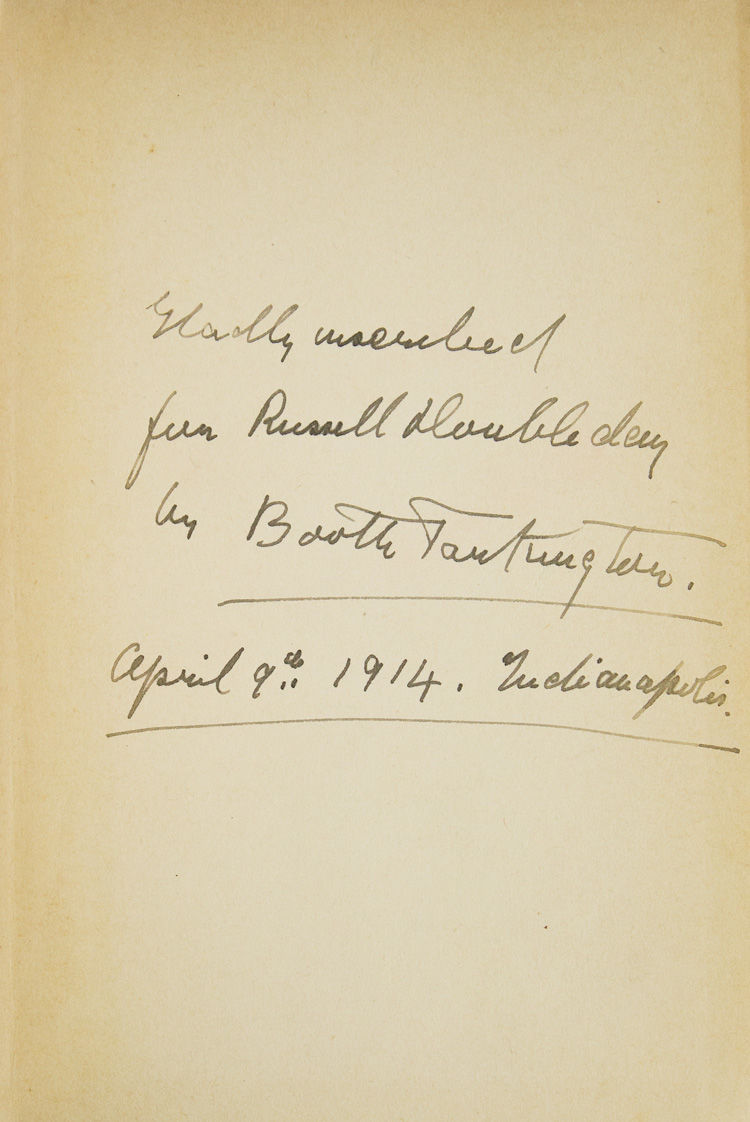 Gladly inscribed
for Russell Doubleday
by Booth Tarkington.
April 9th. 1914. Indianapolis.